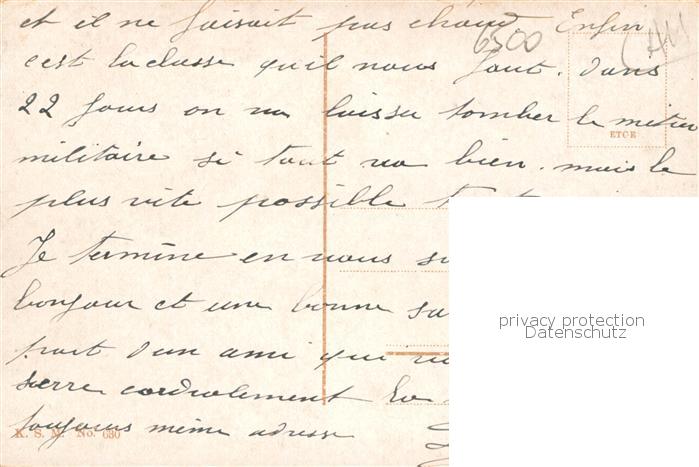 et il ne faisait pas chaud. Enfin
6500
AM
c'est la classe qu'il nous faut. dans
22 jours on va laisser tomber le métier
ETCE
militaire si tout va bien. mais le
plus vite possible
Je termine en vous
bonjour et une bonne
part d'un ami qui
serre cordialement
toujours même adresse
K. S. M. No. 630
privacy protection
Datenschutz